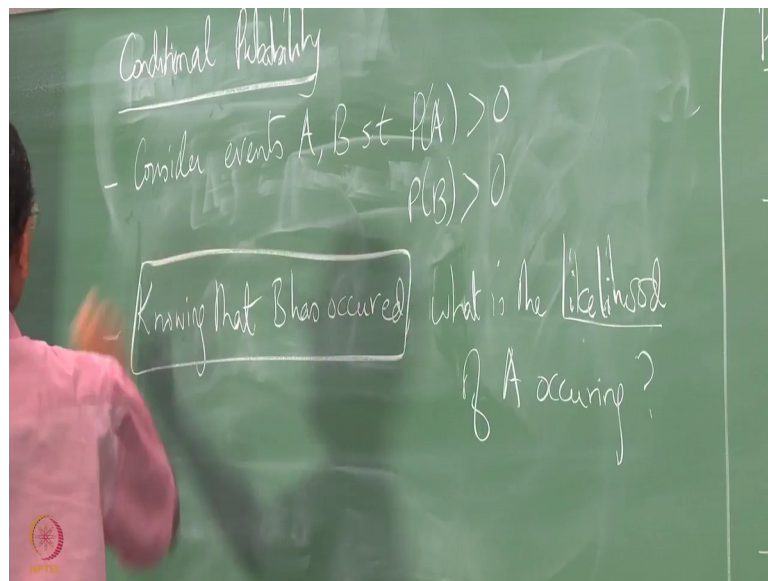 Conditional Probability
- Consider events A, B st P(A) > 0
P(B) > 0
- Knowing that B has occured, what is the likelihood
of A occuring?
NPTEL